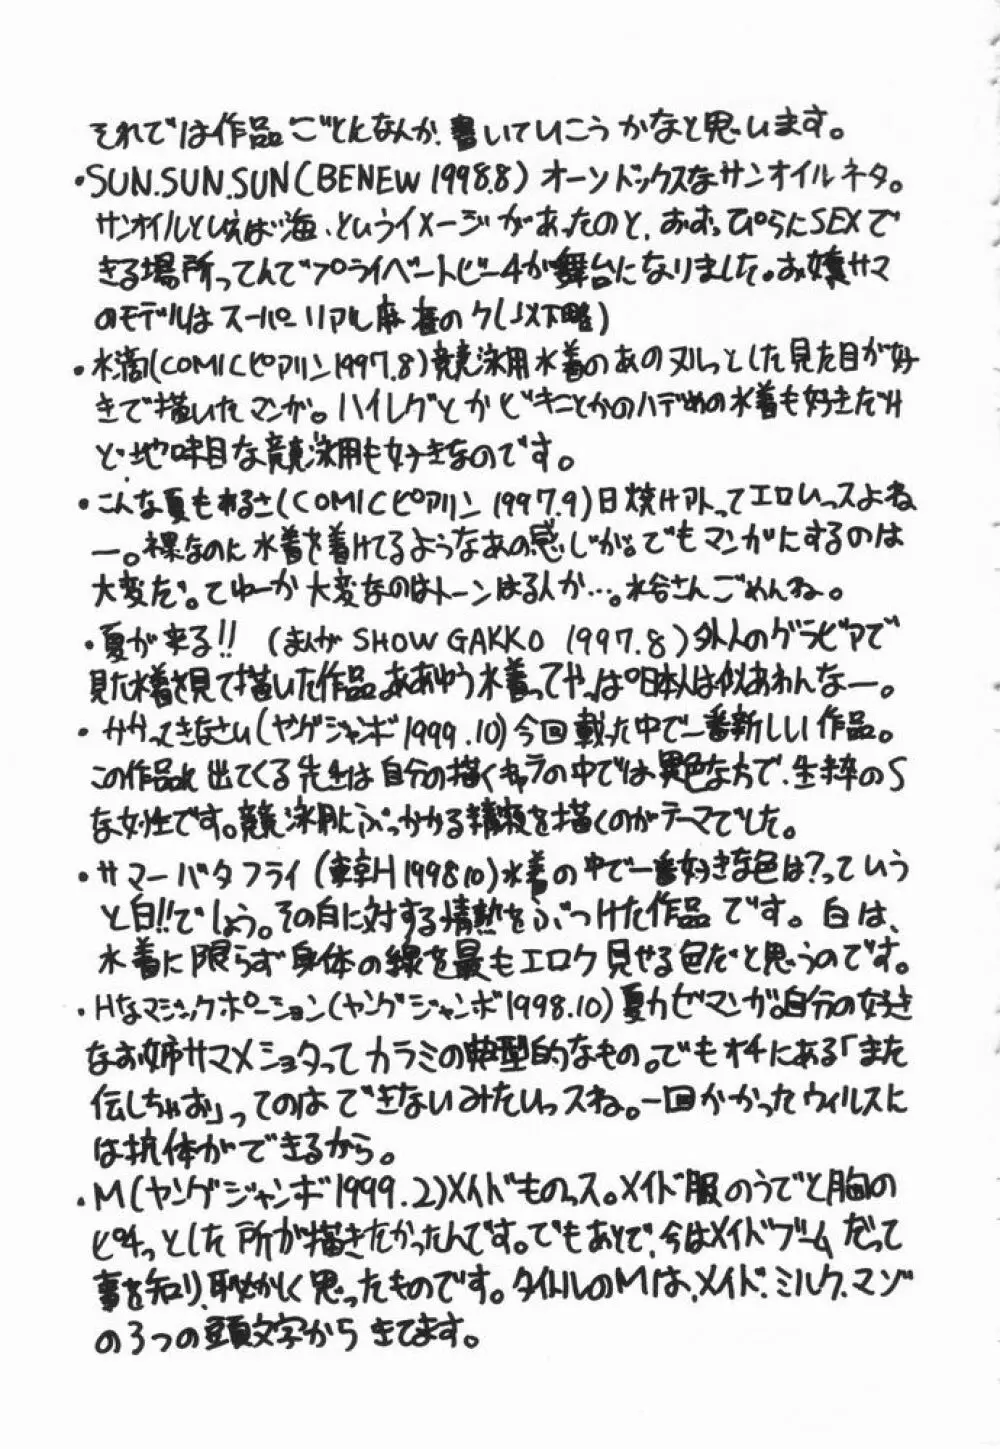 それでは作品ごとになんか、書いていこうかなと思います。
・SUN.SUN.SUN(BENEW 1998.8) オーソドックスなサンオイルネタ。
サンオイルといえば海、というイメージがあったのと、おおっぴらにSEXで
きる場所ってんでプライベートビーチが舞台になりました。お嬢サマ
のモデルはスーパーリアル麻雀のク(以下略)
・水滴(COMICピアリン1997.8)競泳用水着のあのヌルっとした見た目が好
きで描いたマンガ。ハイレグとかビキニとかのハデめの水着も好きだけ
ど、地味目な競泳用も好きなのです。
・こんな夏もわるさ(COMICピアリン 1997.9)日焼けアトってエロいっスよね
ー。裸なのに水着を着けてるようなあの感じが。でもマンガにするのは
大変だ。てゆーか大変なのはトーンはる人か…。水谷さんごめんね。
・夏が来る!! (まんがSHOW GAKKO 1997.8)外人のグラビアで
見た水着を見て描いた作品。ああゆう水着ってやっぱ日本人は似あわんなー。
・かかってきなさい(ヤングジャンボ1999.10)今回載った中で一番新しい作品。
この作品に出てくる先生は自分の描くキャラの中では異色な方で、生粋のS
な女性です。競泳用にぶっかかる精液を描くのがテーマでした。
・サマーバタフライ(東京H1998.10)水着の中で一番好きな色は?っていう
と白!!でしょう。その白に対する情熱をぶつけた作品です。白は、
水着に限らず身体の線を最もエロク見せる色だと思うのです。
・Hなマジックポーション(ヤングジャンボ1998.10)夏カゼマンガ。自分の好き
なお姉サマメショタってカラミの典型的なもの。でもオチにある「また
伝しちゃお」ってのはできないみたいっスね。一回かかったウィルスに
は抗体ができるから。
・M(ヤングジャンボ1999.2)メイドものっス。メイド服のうでと胸の
ピチっとした所が描きたかったんです。でもあとで、今はメイドブームだって
事を知り、恥かしく思ったものです。タイトルのMは、メイド、ミルク、マゾ
の3つの頭文字からきてます。